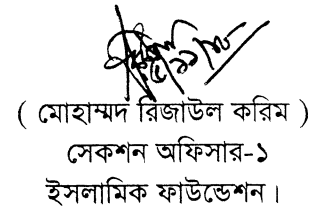 ( মোহাম্মদ রিজাউল করিম )
সেকশন অফিসার-১
ইসলামিক ফাউন্ডেশন।